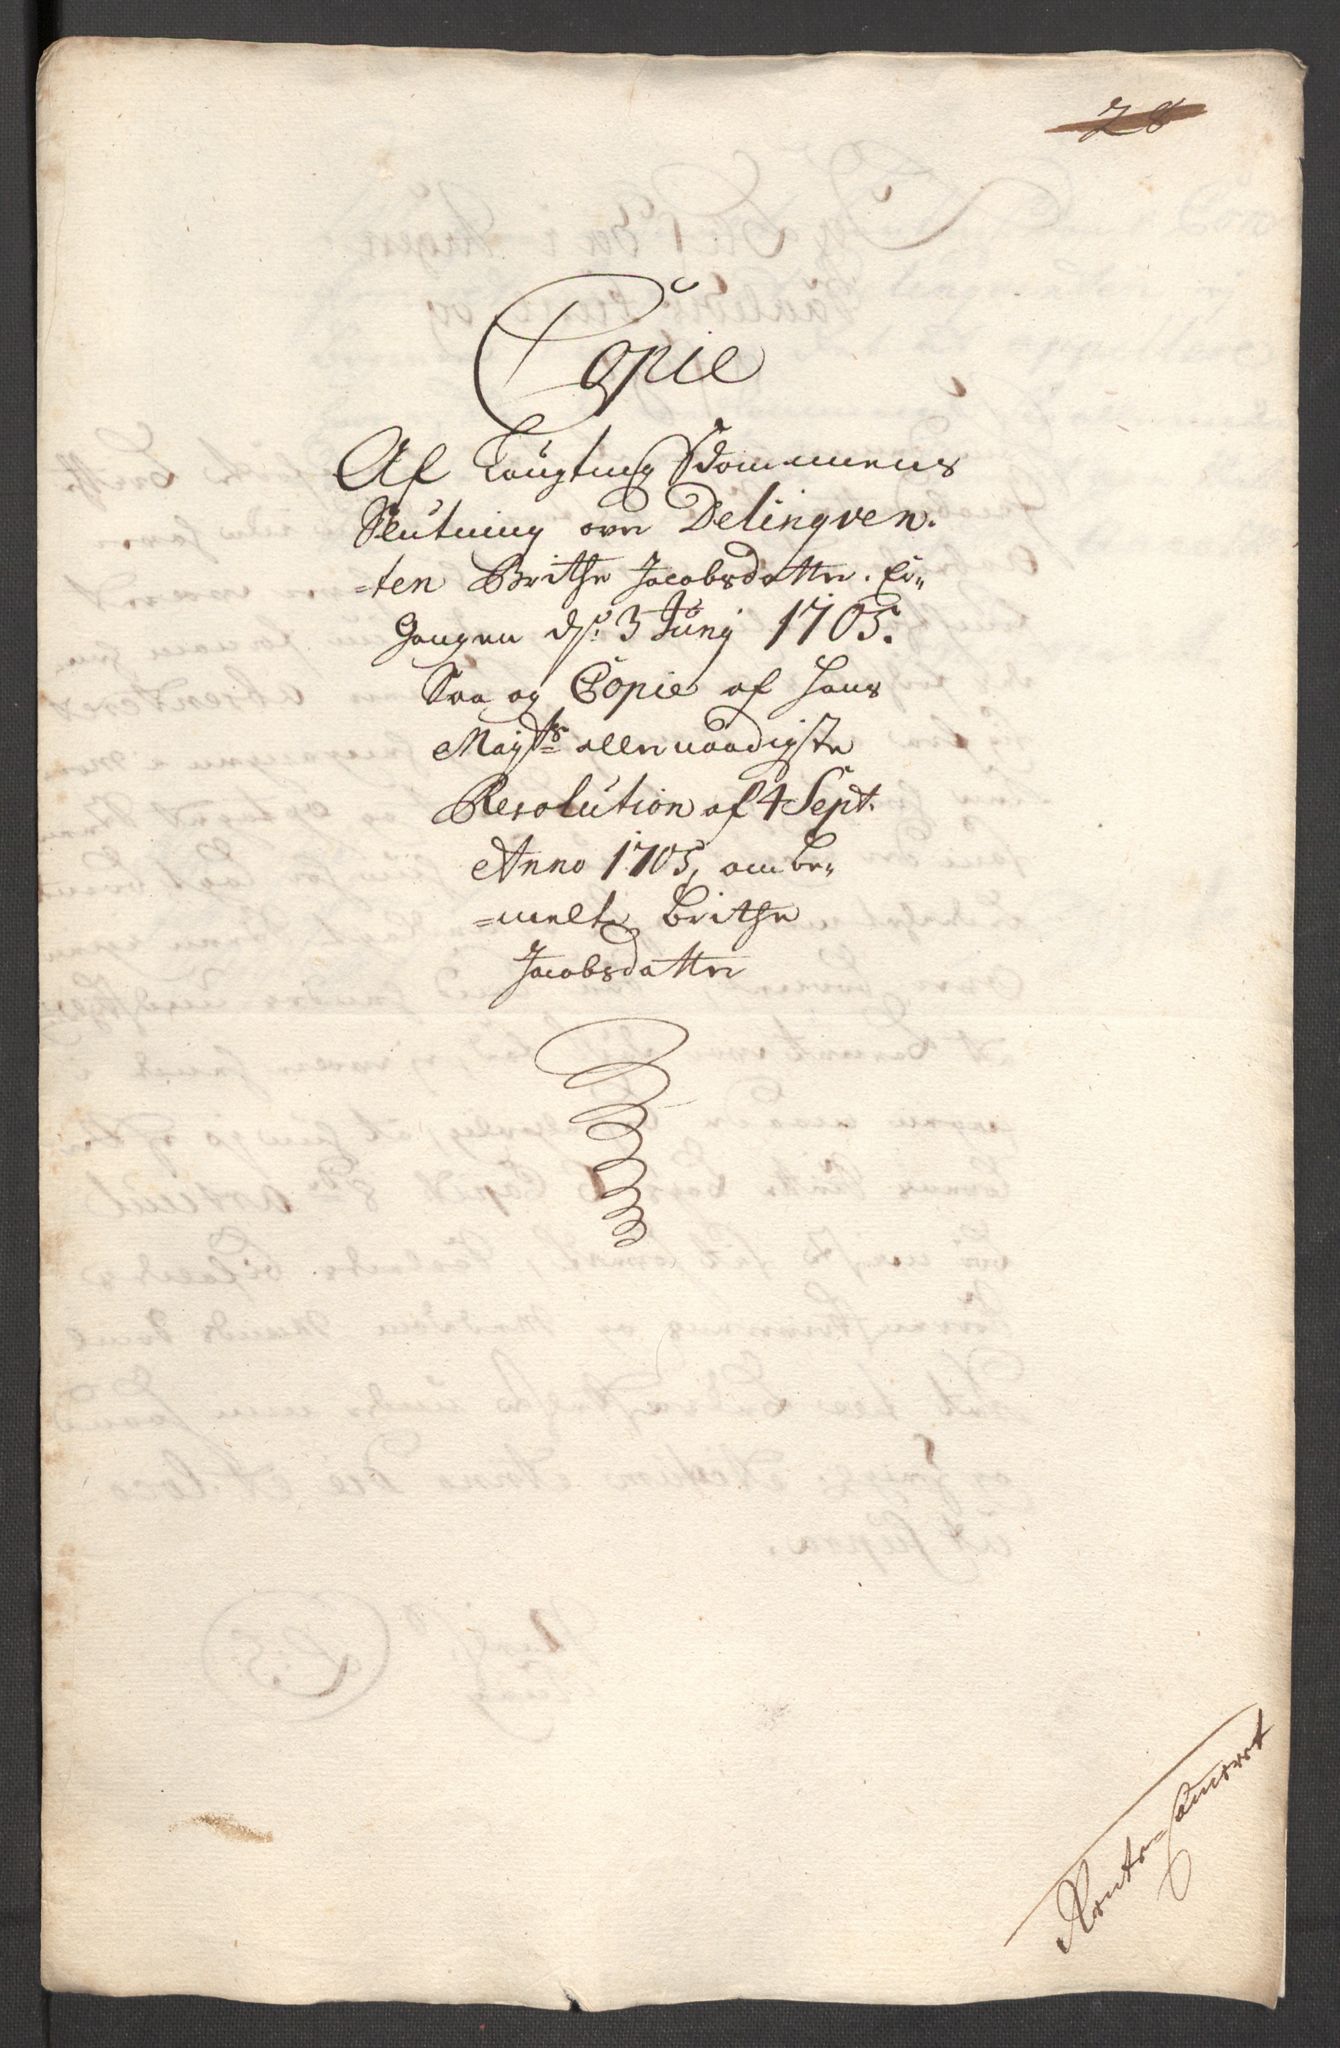 28
Copie
Af Laugtings Dommens
Slutning over Delinqven-
=ten Brithe Jacobsdatter. Er=
gangen dj. 3 Junij 1705.
Saa og Copie af Hans
Mayts allernaadigste
Resolution af 4 Sept.
Anno 1705, om be=
=melte Brithe
Jacobsdatter
Rente=Cameret